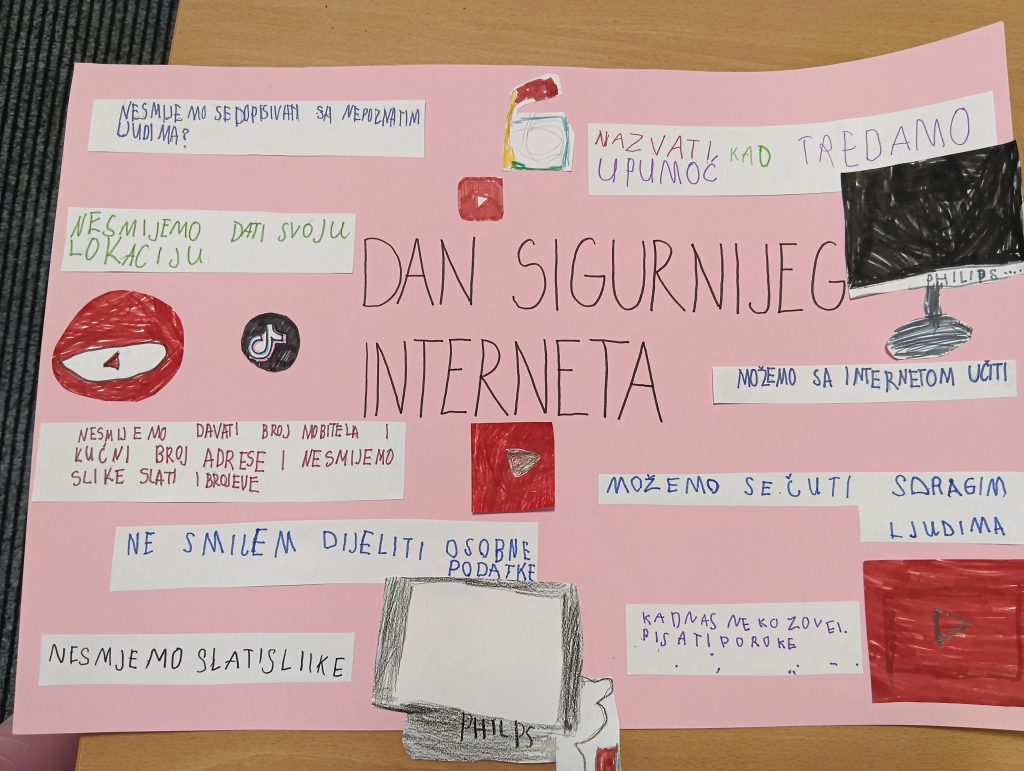 NESMIJEMO SE DOPISIVATI SA NEPOZNATIM
LJUDIMA?
NAZVATI, KAD TREDAMO
UPUMOĆ
NESMIJEMO DATI SVOJU
LOKACIJU.
DAN SIGURNIJEG
INTERNETA
PHILIPS....
MOŽEMO SA INTERNETOM UČITI
NESMIJEMO DAVATI BROJ MOBITELA I
KUĆNI BROJ ADRESE I NESMIJEMO
SLIKE SLATI I BROJEVE
MOŽEMO SE.ČUTI SDRAGIM
LJUDIMA
NE SMIJEM DIJELITI OSOBNE
PODATKE
KADNAS NEKO ZOVEI.
PISATI POROKE
NESMJEMO SLATISLIIKE
PHILPS